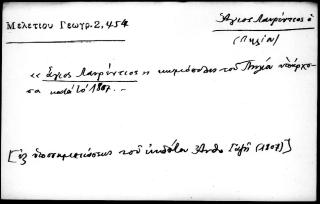 Μελετίου Γεωγρ. 2, 454
Ἅγιος Λαυρέντιος ὁ
(Πηλίου)
« Ἅγιος Λαυρέντιος ἡ κωμόπολις τοῦ Πηλίου ὑπάρχου-
σα κατὰ τὸ 1807. –
[ἐξ ὑποσημειώσεως τοῦ ἐκδότου Ἀνθ. Γαζῆ (1807)]